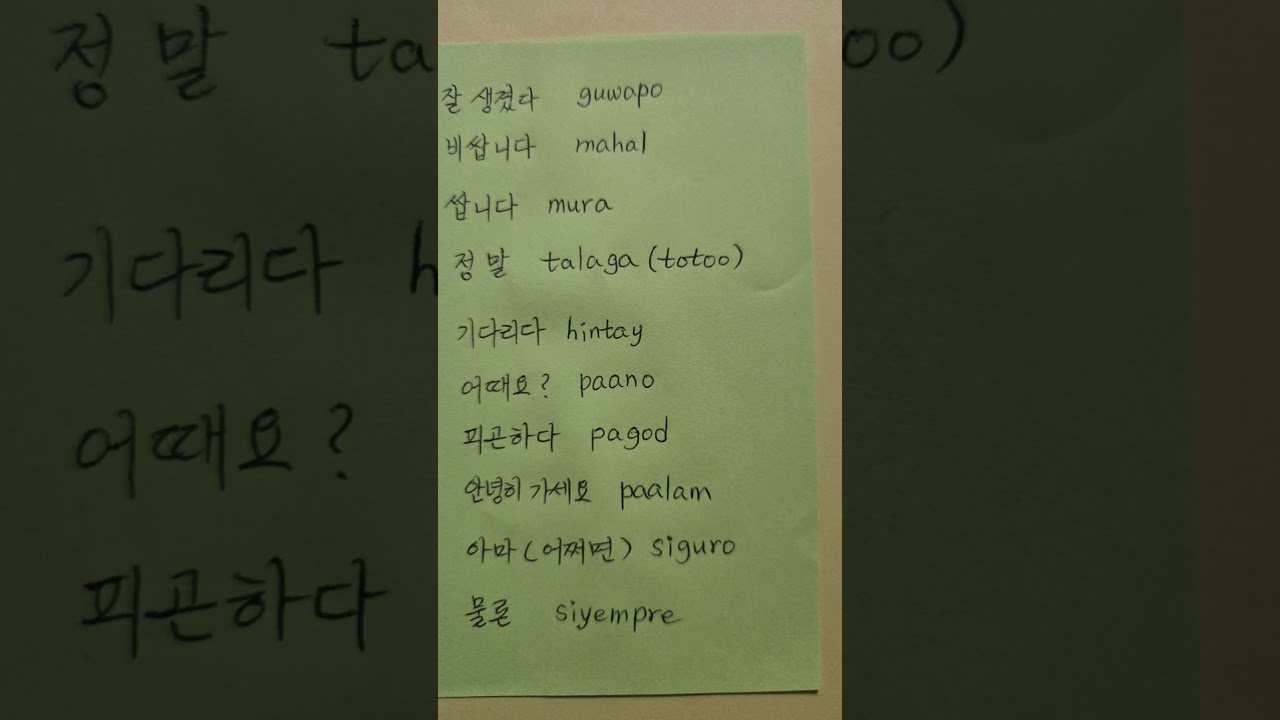 잘 생겼다 guwapo
비쌉니다 mahal
쌉니다 mura
정말 talaga (totoo)
기다리다 hintay
어때요? paano
피곤하다 pagod
안녕히 가세요 paalam
아마 (어쩌면) siguro
물론 siyempre